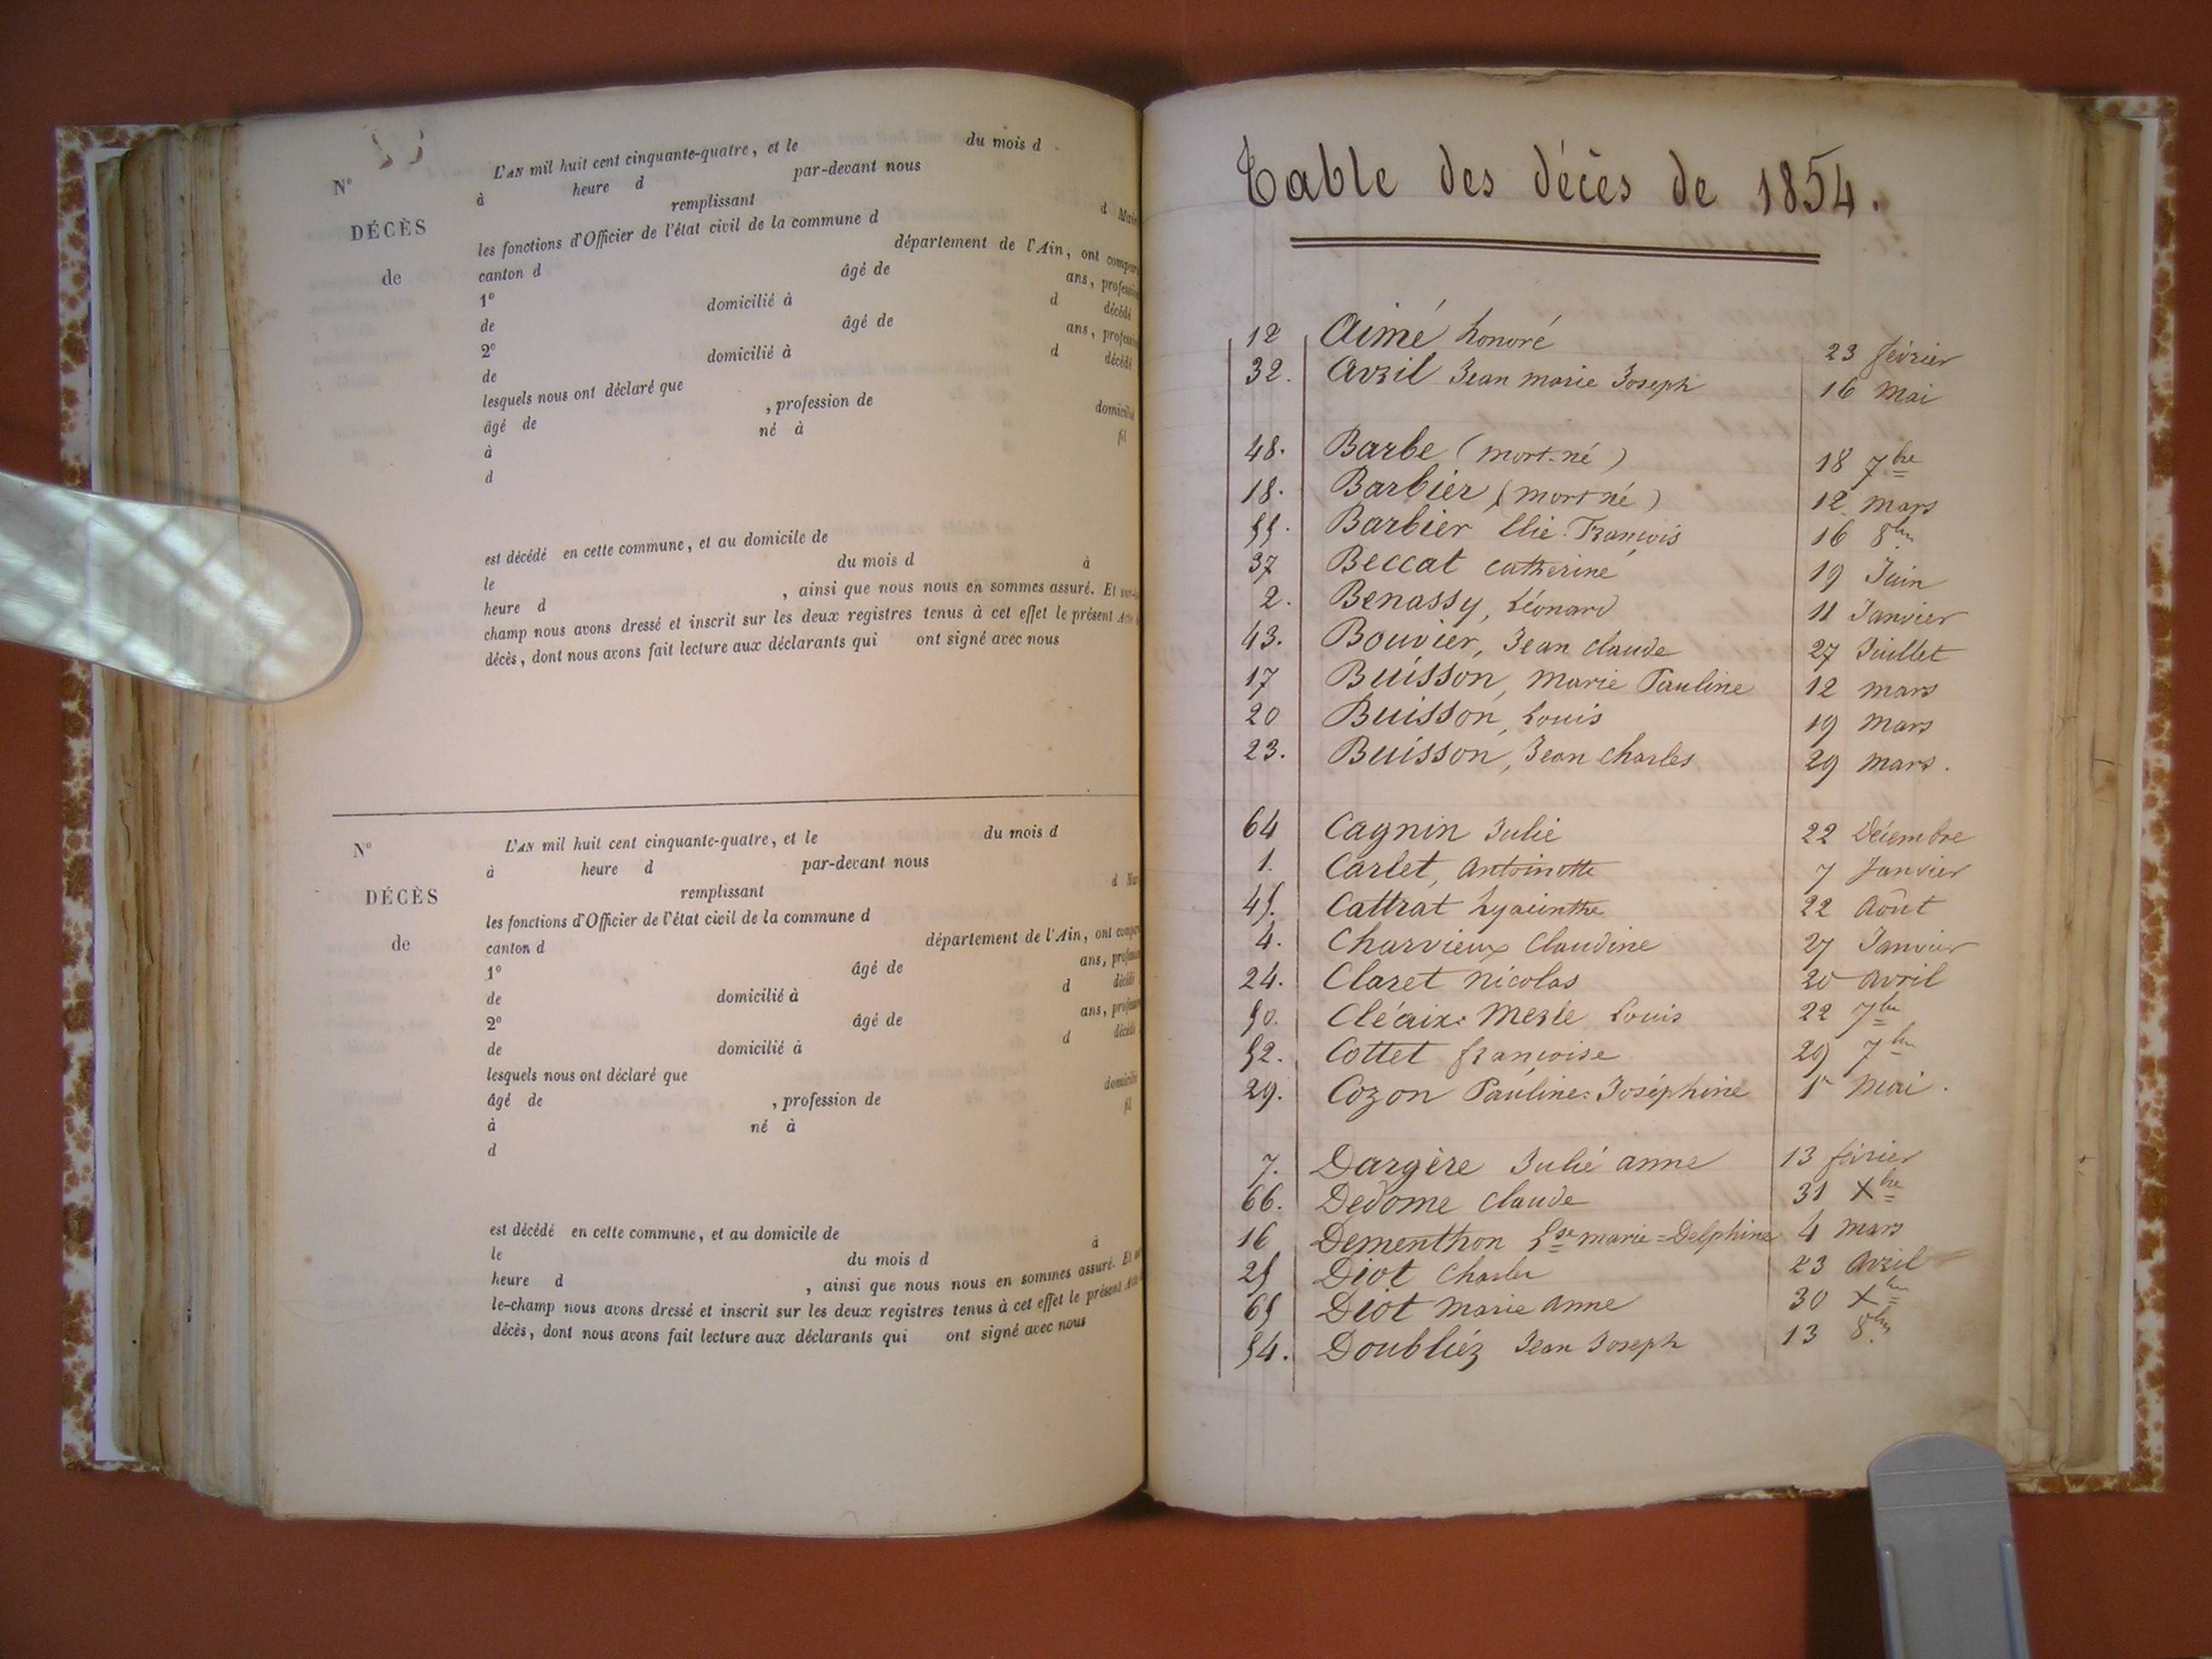 L'AN mil huit cent cinquante-quatre, et le du mois d
N° à heure d par-devant nous
remplissant d
DÉCÈS les fonctions d'Officier de l'état civil de la commune d
de canton d département de l'Ain, ont
1° âgé de ans,
de domicilié à d décédé
2° âgé de ans,
de domicilié à d décédé
lesquels nous ont déclaré que
âgé de , profession de
à né à fil
d
est décédé en cette commune, et au domicile de
le du mois d à
heure d , ainsi que nous nous en sommes assuré. Et
champ nous avons dressé et inscrit sur les deux registres tenus à cet effet le présent
décès, dont nous avons fait lecture aux déclarants qui ont signé avec nous
L'AN mil huit cent cinquante-quatre, et le du mois d
N° à heure d par-devant nous
remplissant d
DÉCÈS les fonctions d'Officier de l'état civil de la commune d
de canton d département de l'Ain, ont
1° âgé de ans,
de domicilié à d décédé
2° âgé de ans,
de domicilié à d décédé
lesquels nous ont déclaré que
âgé de , profession de
à né à fil
d
est décédé en cette commune, et au domicile de
le du mois d à
heure d , ainsi que nous nous en sommes assuré.
le-champ nous avons dressé et inscrit sur les deux registres tenus à cet effet le présent
décès, dont nous avons fait lecture aux déclarants qui ont signé avec nous
Table des décès de 1854.
12 Aimé honoré 23 février
32. Avril Jean marie Joseph 16 Mai
48. Barbe (mort-né) 18 7bre
18. Barbier (mort né) 12 mars
55. Barbier Elie François 16 8bre
37 Beccat catherine 19 Juin
2. Benassy, Léonard 11 Janvier
43. Bouvier, Jean claude 27 Juillet
17 Buisson, Marie Pauline 12 mars
20 Buisson, Louis 19 mars
23. Buisson, Jean charles 29 mars.
64 Cagnin Julie 22 Décembre
1. Carlet, Antoinette 7 Janvier
45. Cattrat hyacinthe 22 Août
4. Charvieux Claudine 27 Janvier
24. Claret Nicolas 20 avril
50. Cléaix: Merle Louis 22 7bre
52. Cottet françoise 29 7bre
29. Cozon Pauline: Joséphine 1er Mai.
7. Dargère Julie anne 13 février
66. Dedome Claude 31 Xbre
16 Dementhon marie=Delphine 4 mars
25 Diot Charles 23 Avril
65 Diot Marie Anne 30 Xbre
54. Doubliéz Jean Joseph 13 8bre